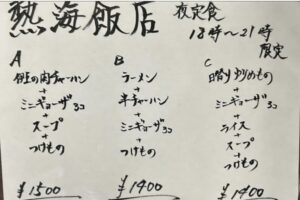 熱海飯店
夜定食
18時〜21時
限定
A
牡蠣チャーハン
+
ミニギョーザ3コ
+
スープ
+
つけもの
¥1500
B
ラーメン
+
半チャーハン
+
ミニギョーザ3コ
+
つけもの
¥1400
C
日替り炒めもの
+
ミニギョーザ3コ
+
ライス
+
スープ
+
つけもの
¥1400